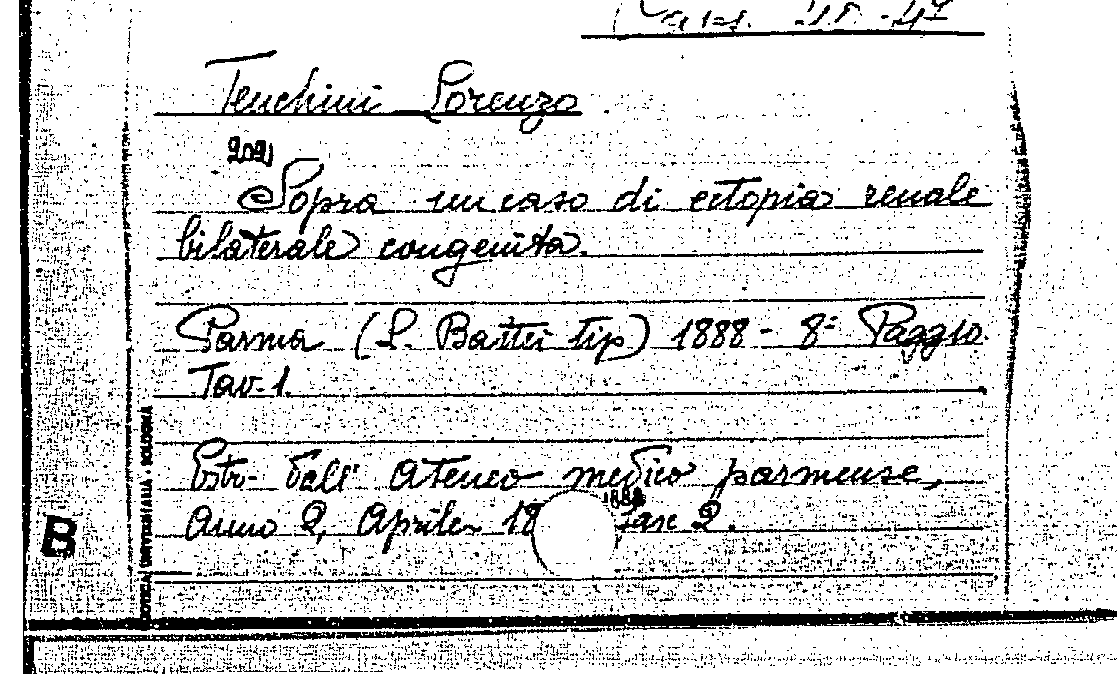 Tenchini Lorenzo
Sopra un caso di ectopia renale
bilaterale congenita.
Parma (L. Battei tip) 1888 - 8º Paggio.
Tav. 1.
Estr. dall' Ateneo medico parmense,
Anno 2, Aprile 18
1888
fasc 2.
B